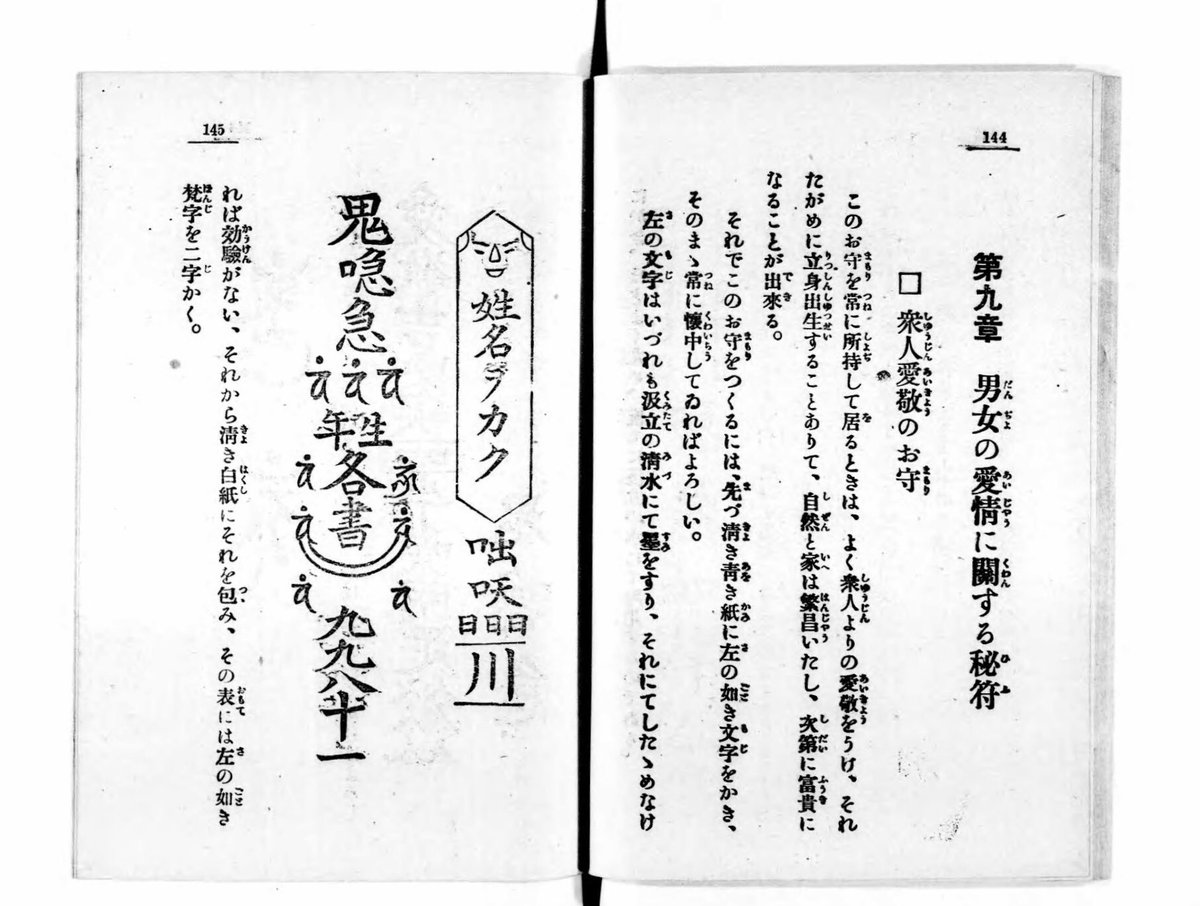 144
第九章 男女の愛情に關する秘符
□ 衆人愛敬のお守
このお守を常に所持して居るときは、よく衆人よりの愛敬をうけ、それ
たがめに立身出生することありて、自然と家は繁昌いたし、次第に富貴に
なることが出來る。
それでこのお守をつくるには、先づ清き靑き紙に左の如き文字をかき、
そのまゝ常に懷中してゐればよろしい。
左の文字はいづれも汲立の清水にて墨をすり、それにてしたゝめなけ
145
姓名ヲカク
咄㕵
日日日
川
鬼急
生年
各書
九九八十一
れば効驗がない、それから清き白紙にそれを包み、その表には左の如き
梵字を二字かく。